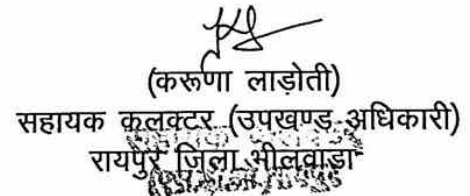 (करूणा लाड़ोती)
सहायक कलक्टर (उपखण्ड अधिकारी)
रायपुर जिला भीलवाड़ा